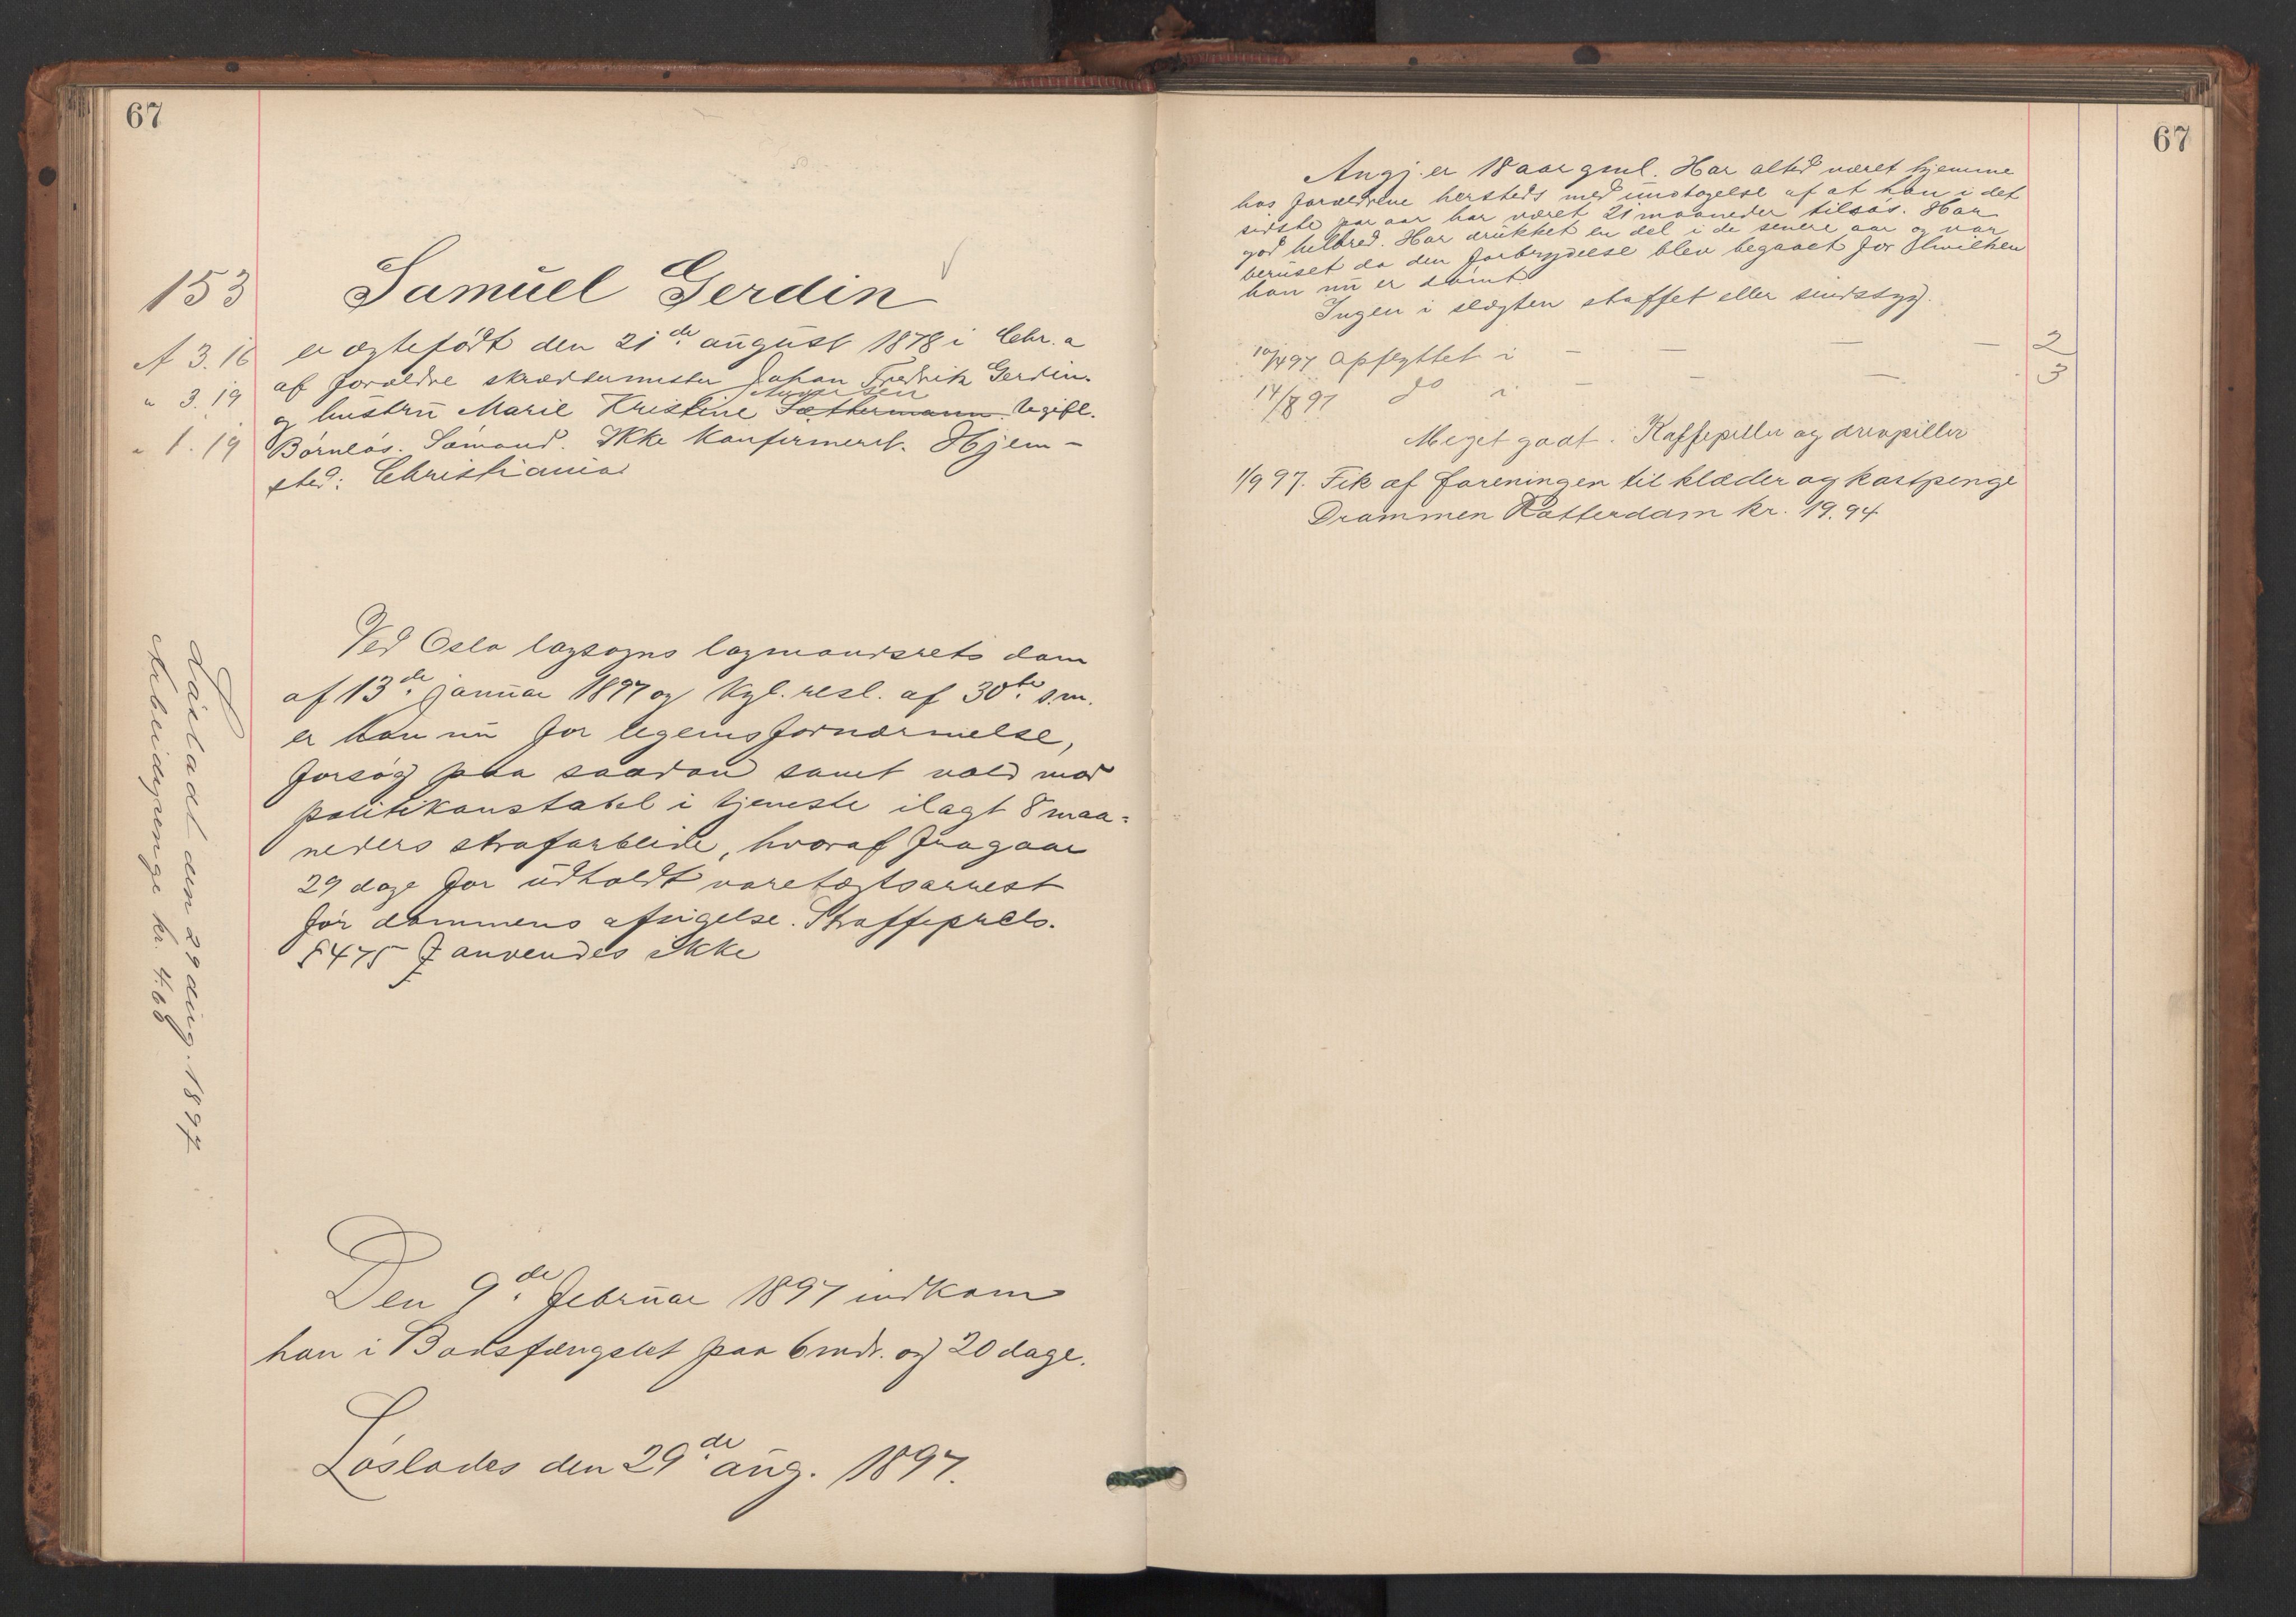 67
153
Samuel Gerdin
A 3.16
" 3.19
" 1.19
er ægtefødt den 21de august 1878 i Chr.a
af forældre skræddermester Johan Fredrik Gerdin
og hustru Marie Kristine Sættermann. Ugift.
Barnløs. Sømand. Ikke konfirmeret. Hjem-
sted: Christiania
Ved Oslo lagsogns lagmandsrets dom
af 13de januar 1897 og kgl. resl. af 30te s.m.
er han nu for legemsfornærmelse,
forsøg paa saadan samt vold mod
politikonstabel i tjeneste ilagt 8 maa-
neders strafarbeide, hvoraf fragaar
29 dage for udholdt varetægtsarrest
før dommens afsigelse. Straffeprcls.
§ 475 anvendes ikke
Løsladt den 29 aug. 1897
Arbeidspenge kr. 4.68
Den 9de februar 1897 indkom
han i Bodsfængslet paa 6 mdr. og 20 dage.
Løslades den 29de aug. 1897.
67
Angj. er 18 aar gml. Har altid været hjemme
hos forældrene hersteds med undtagelse af at han i det
sidste par aar har været 21 maaneder tilsøs. Har
god helbred. Har drukket en del i de senere aar og var
beruset da den forbrydelse blev begaaet for hvilken
han nu er dømt
Ingen i slægten straffet eller sindssyg.
10/4 97 Opflyttet i — — — — 2
14/8 97 do i — — — 3
Meget godt. Kaffepiller og
1/9 97. Fik af foreningen til klæder og kostpenge
Drammen Rotterdam kr. 19.94